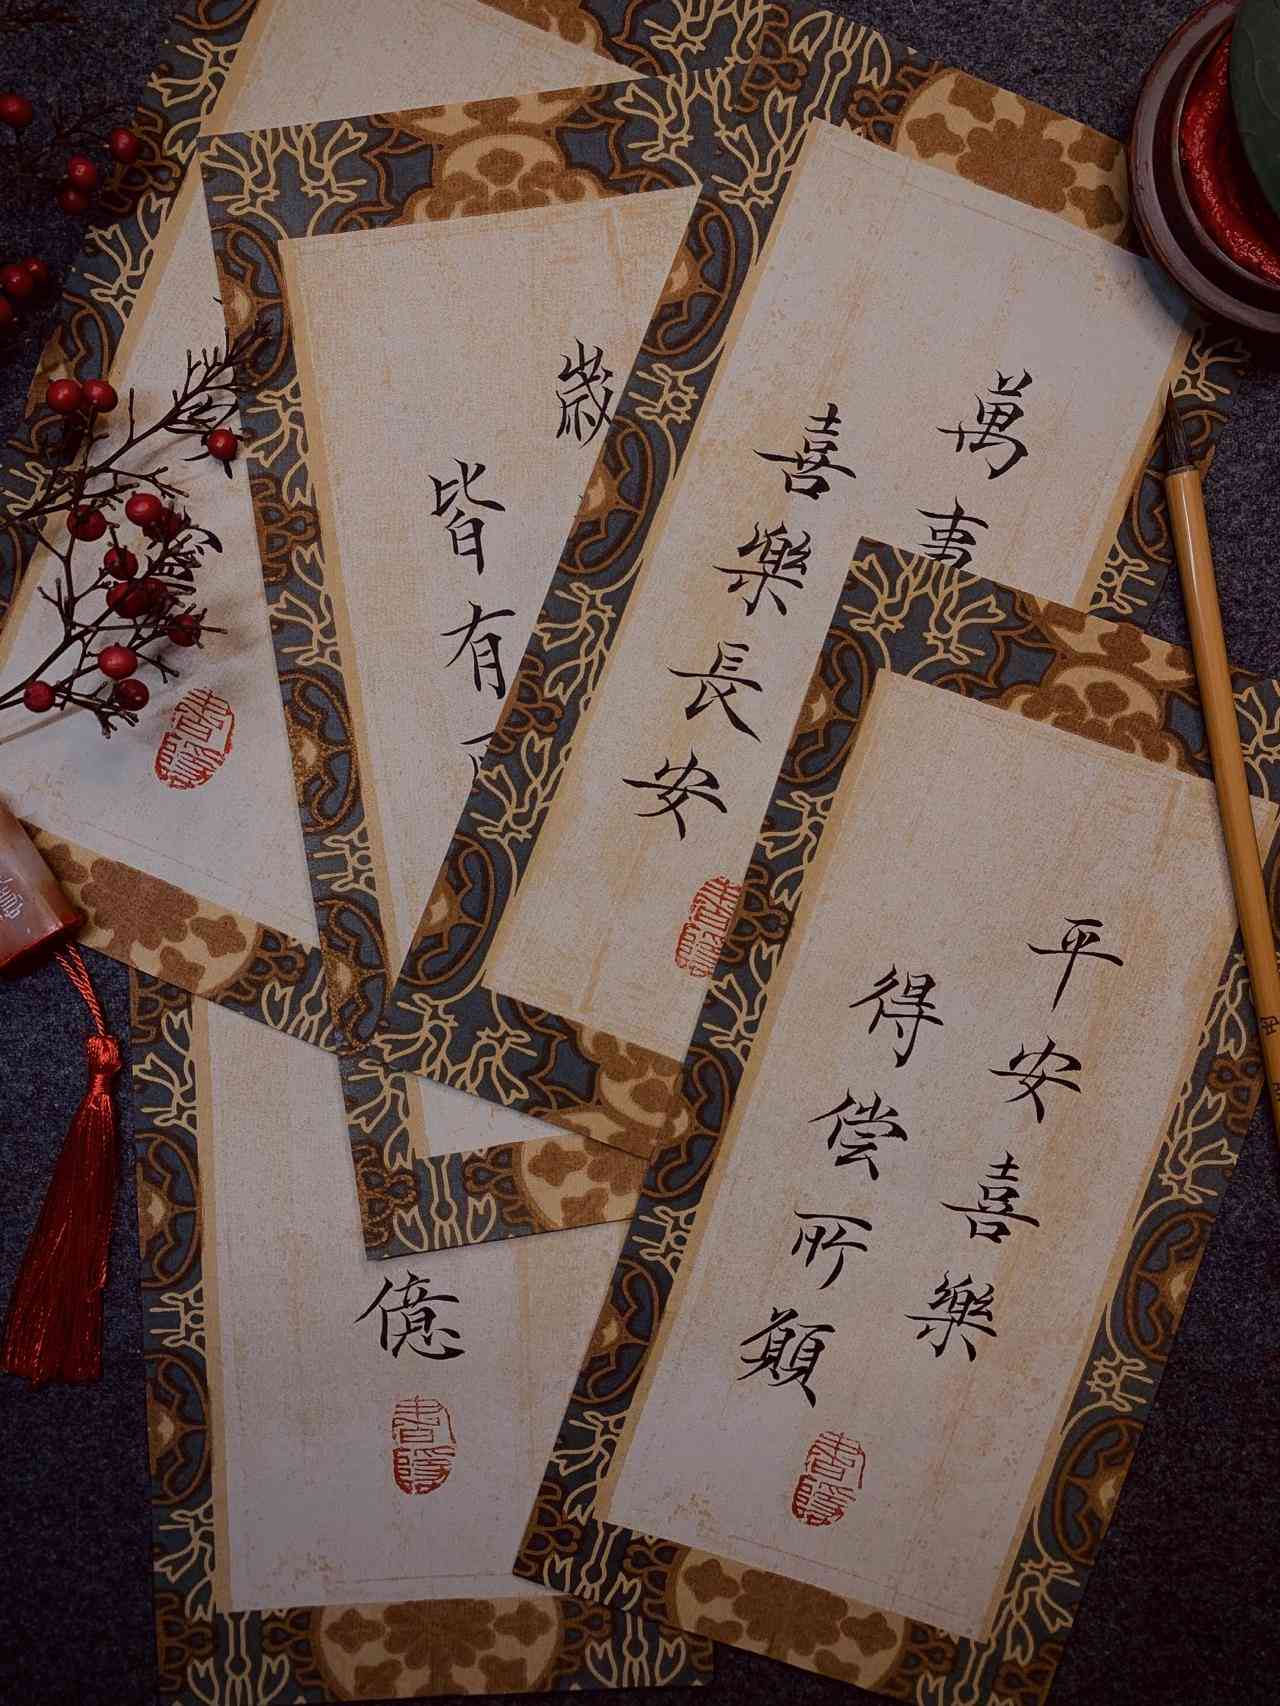 萬事
喜樂長安
歲
皆有
平安喜樂
得偿所願
億